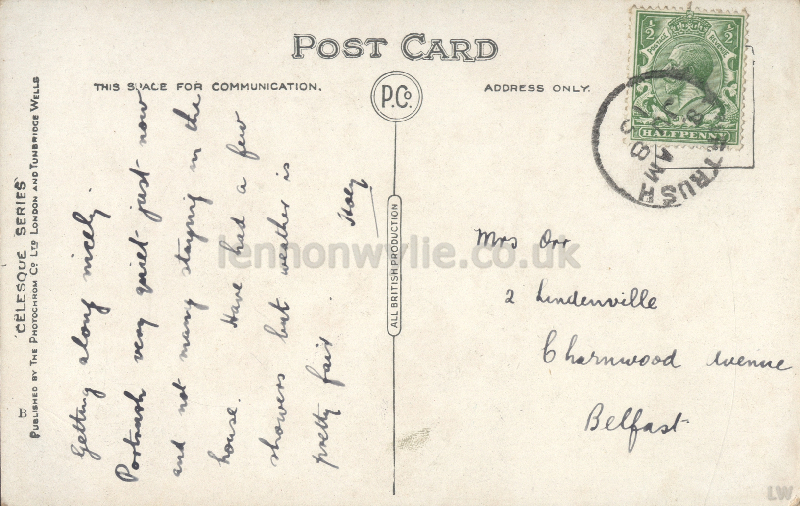 POST CARD
THIS SPACE FOR COMMUNICATION.
P.Co.
ADDRESS ONLY.
½ ½
POSTAGE REVENUE
HALFPENNY
TRUSH
8 AM
'CELESQUE SERIES'
PUBLISHED BY THE PHOTOCHROM Co. LTD LONDON AND TUNBRIDGE WELLS
B
ALL BRITISH PRODUCTION
Getting along nicely.
Portrush very quiet just now
and not many staying in the
house. Have had a few
showers but weather is
pretty fair.
Mrs Orr
2 Lindenville
Charnwood Avenue
Belfast
lennonwylie.co.uk
LW